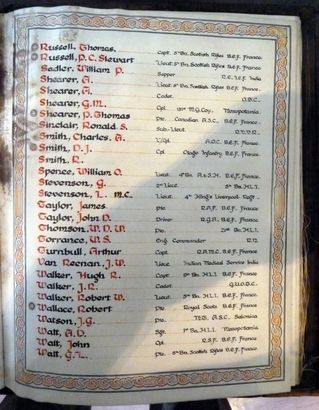 Russell, Thomas.
Russell, P.C. Stewart Capt. 5th Bn. Scottish Rifles B.E.F. France.
Sadler, William P. Lieut. 5th Bn. Scottish Rifles B.E.F. France
Shearer, A. Sapper R.E., I.E.F. India
Shearer, A. Lieut. 5th Bn. Scottish Rifles B.E.F. France
Shearer, G.M. Cadet. O.B.C.
Shearer, P. Thomas Cpl. M.G. Coy. Mesopotamia.
Sinclair, Ronald S. Pte. Canadian A.S.C. B.E.F. France.
Smith, Charles, A. Sub-Lieut. R.N.V.R.
Smith, D.J. L/Cpl. A.O.C. B.E.F. France
Smith, R. Cpl. Otago Infantry B.E.F. France.
Spence, William O. Lieut. 4th Bn. A.&S.H. B.E.F. France.
Stevenson, G. 2nd Lieut. Bn. H.L.I.
Stevenson, L. M.C. Lieut. 4th King's Liverpool Regt.
Taylor, James Pte. R.A.F. B.E.F. France
Taylor, John D. Driver R.G.A. B.E.F. France
Thomson, W.D.W. Pte. Bn. H.L.I.
Torrance, W.S. Eng. Commander R.N.
Turnbull, Arthur Capt. R.A.M.C. B.E.F. France
Van Reenan, J.W. Lieut. Indian Medical Service India
Walker, Hugh R. Capt. Bn. H.L.I. B.E.F. France
Walker, J.R. Cadet. G.U.O.T.C.
Walker, Robert W. Lieut. 5th Bn. H.L.I. B.E.F. France
Wallace, Robert Pte. Royal Scots B.E.F. France
Watson, J.G. Pte. A.S.C. Salonica
Watt, A.D. Sgt. Bn. H.L.I. Mesopotamia
Watt, John Cpl. R.S.F. B.E.F. France
Watt, G.L. Pte. 5th Bn. Scottish Rifles B.E.F. France